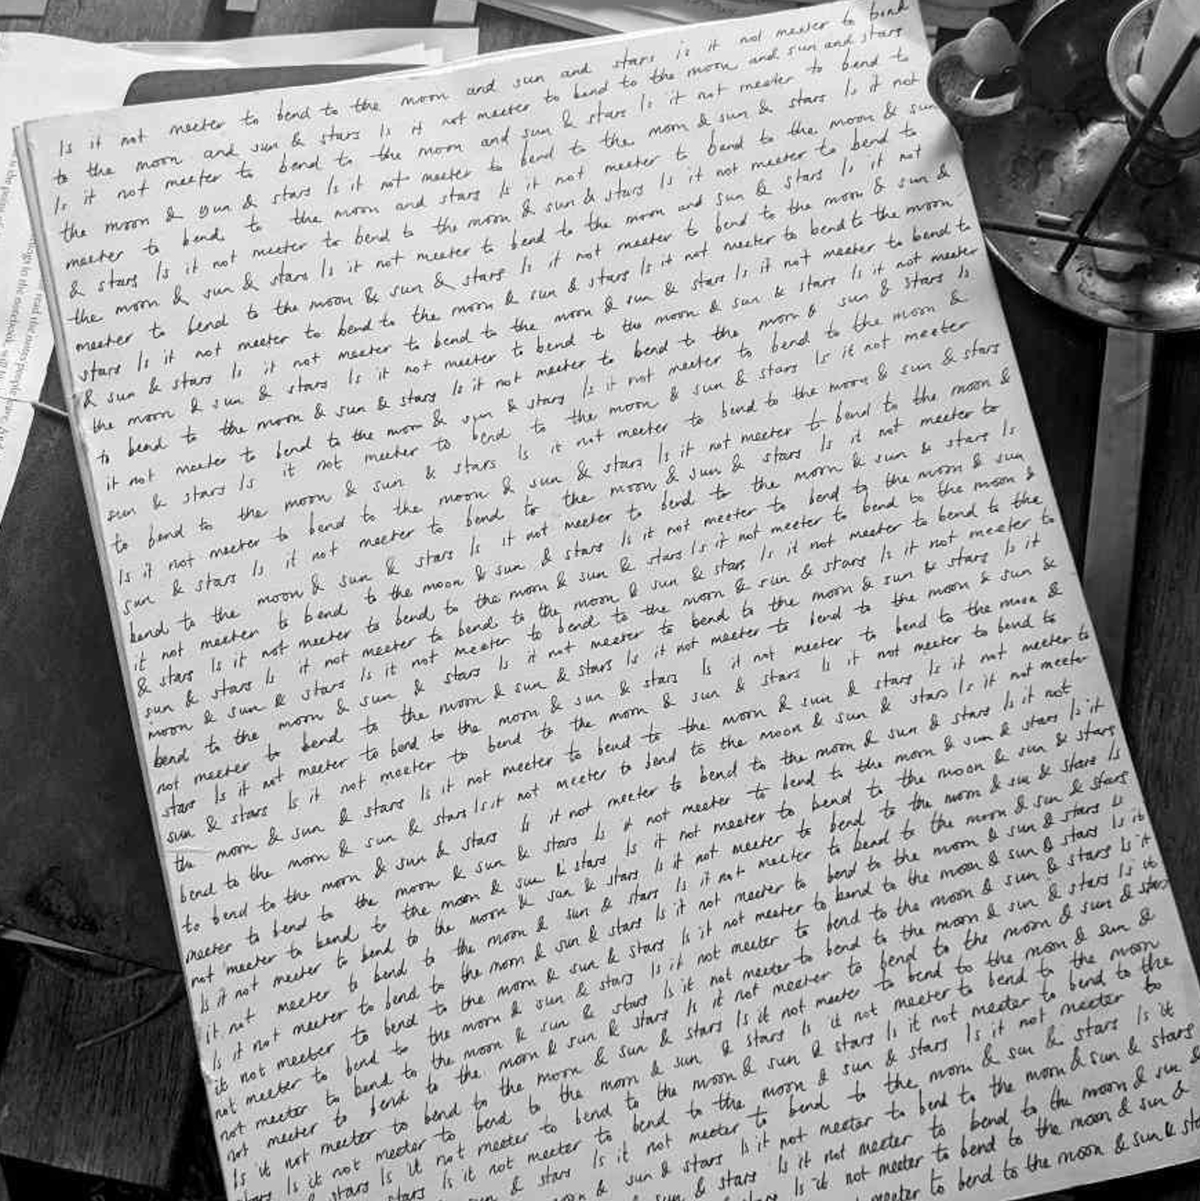 Is it not meeter to bend to the moon and sun and stars is it not meeter to bend
to the moon and sun & stars Is it not meeter to bend to the moon and sun and stars
Is it not meeter to bend to the moon and sun & stars Is it not meeter to bend to
the moon & sun & stars Is it not meeter to bend to the moon & sun & stars Is it not
meeter to bend to the moon and stars Is it not meeter to bend to the moon & sun
& stars Is it not meeter to bend to the moon & sun & stars Is it not meeter to bend to
the moon & sun & stars Is it not meeter to bend to the moon and sun & stars Is it not
meeter to bend to the moon & sun & stars Is it not meeter to bend to the moon & sun &
stars Is it not meeter to bend to the moon & sun & stars Is it not meeter to bend to the moon
& sun & stars Is it not meeter to bend to the moon & sun & stars Is it not meeter to bend to
the moon & sun & stars Is it not meeter to bend to the moon & sun & stars Is it not meeter
to bend to the moon & sun & stars Is it not meeter to bend to the moon & sun & stars Is
it not meeter to bend to the moon & sun & stars Is it not meeter to bend to the moon &
sun & stars Is it not meeter to bend to the moon & sun & stars Is it not meeter
to bend to the moon & sun & stars Is it not meeter to bend to the moon & sun & stars
Is it not meeter to bend to the moon & sun & stars Is it not meeter to bend to the moon &
sun & stars Is it not meeter to bend to the moon & sun & stars Is it not meeter to
bend to the moon & sun & stars Is it not meeter to bend to the moon & sun & stars Is
it not meeter to bend to the moon & sun & stars Is it not meeter to bend to the moon & sun
& stars Is it not meeter to bend to the moon & sun & stars Is it not meeter to bend to the moon &
sun & stars Is it not meeter to bend to the moon & sun & stars Is it not meeter to bend to the
moon & sun & stars Is it not meeter to bend to the moon & sun & stars Is it not meeter to
bend to the moon & sun & stars Is it not meeter to bend to the moon & sun & stars Is it
not meeter to bend to the moon & sun & stars Is it not meeter to bend to the moon & sun &
stars Is it not meeter to bend to the moon & sun & stars Is it not meeter to bend to the moon &
sun & stars Is it not meeter to bend to the moon & sun & stars Is it not meeter to bend to
the moon & sun & stars Is it not meeter to bend to the moon & sun & stars Is it not meeter to
bend to the moon & sun & stars Is it not meeter to bend to the moon & sun & stars Is it not meeter
to bend to the moon & sun & stars Is it not meeter to bend to the moon & sun & stars Is it not
meeter to bend to the moon & sun & stars Is it not meeter to bend to the moon & sun & stars Is it
not meeter to bend to the moon & sun & stars Is it not meeter to bend to the moon & sun & stars
Is it not meeter to bend to the moon & sun & stars Is it not meeter to bend to the moon & sun & stars Is
it not meeter to bend to the moon & sun & stars Is it not meeter to bend to the moon & sun & stars
Is it not meeter to bend to the moon & sun & stars Is it not meeter to bend to the moon & sun & stars Is
it not meeter to bend to the moon & sun & stars Is it not meeter to bend to the moon & sun & stars Is it
not meeter to bend to the moon & sun & stars Is it not meeter to bend to the moon & sun & stars Is it
not meeter to bend to the moon & sun & stars Is it not meeter to bend to the moon & sun & stars Is it
not meeter to bend to the moon & sun & stars Is it not meeter to bend to the moon & sun & stars
Is it not meeter to bend to the moon & sun & stars Is it not meeter to bend to the moon & sun &
stars Is it not meeter to bend to the moon & sun & stars Is it not meeter to bend to the moon
stars Is it not meeter to bend to the moon & sun & stars Is it not meeter to bend to the
stars Is it not meeter to bend to the moon & sun & stars Is it not meeter to
& stars Is it not meeter to bend to the moon & sun & stars Is it
moon & sun & stars Is it not meeter to bend to the moon & sun & stars
sun & stars Is it not meeter to bend to the moon & sun &
stars Is it not meeter to bend to the moon & sun &
meeter to bend to the moon & sun & stars